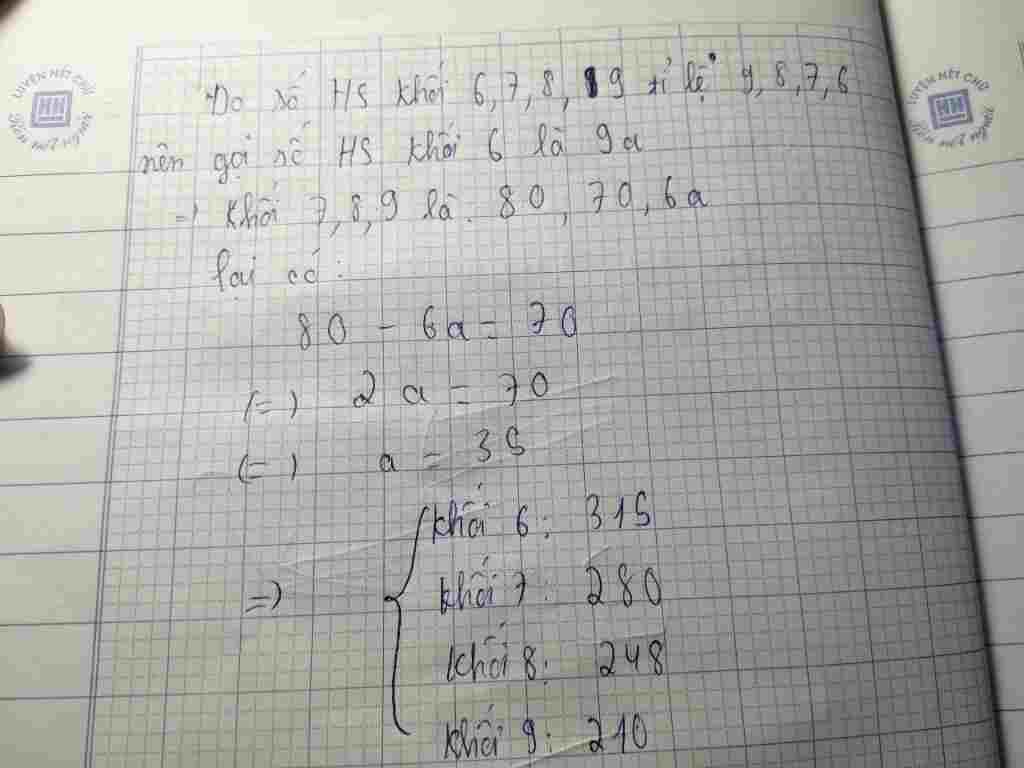 Do số HS khối 6, 7, 8, 9 tỉ lệ 9, 8, 7, 6
nên gọi số HS khối 6 là 9a
=> khối 7, 8, 9 là: 8a, 7a, 6a
lại có:
8a - 6a = 70
(=) 2a = 70
(=) a = 35
=>
khối 6: 315
khối 7: 280
khối 8: 248
khối 9: 210
LUYỆN NÉT CHỮ
HH
LUYỆN NÉT CHỮ
HH